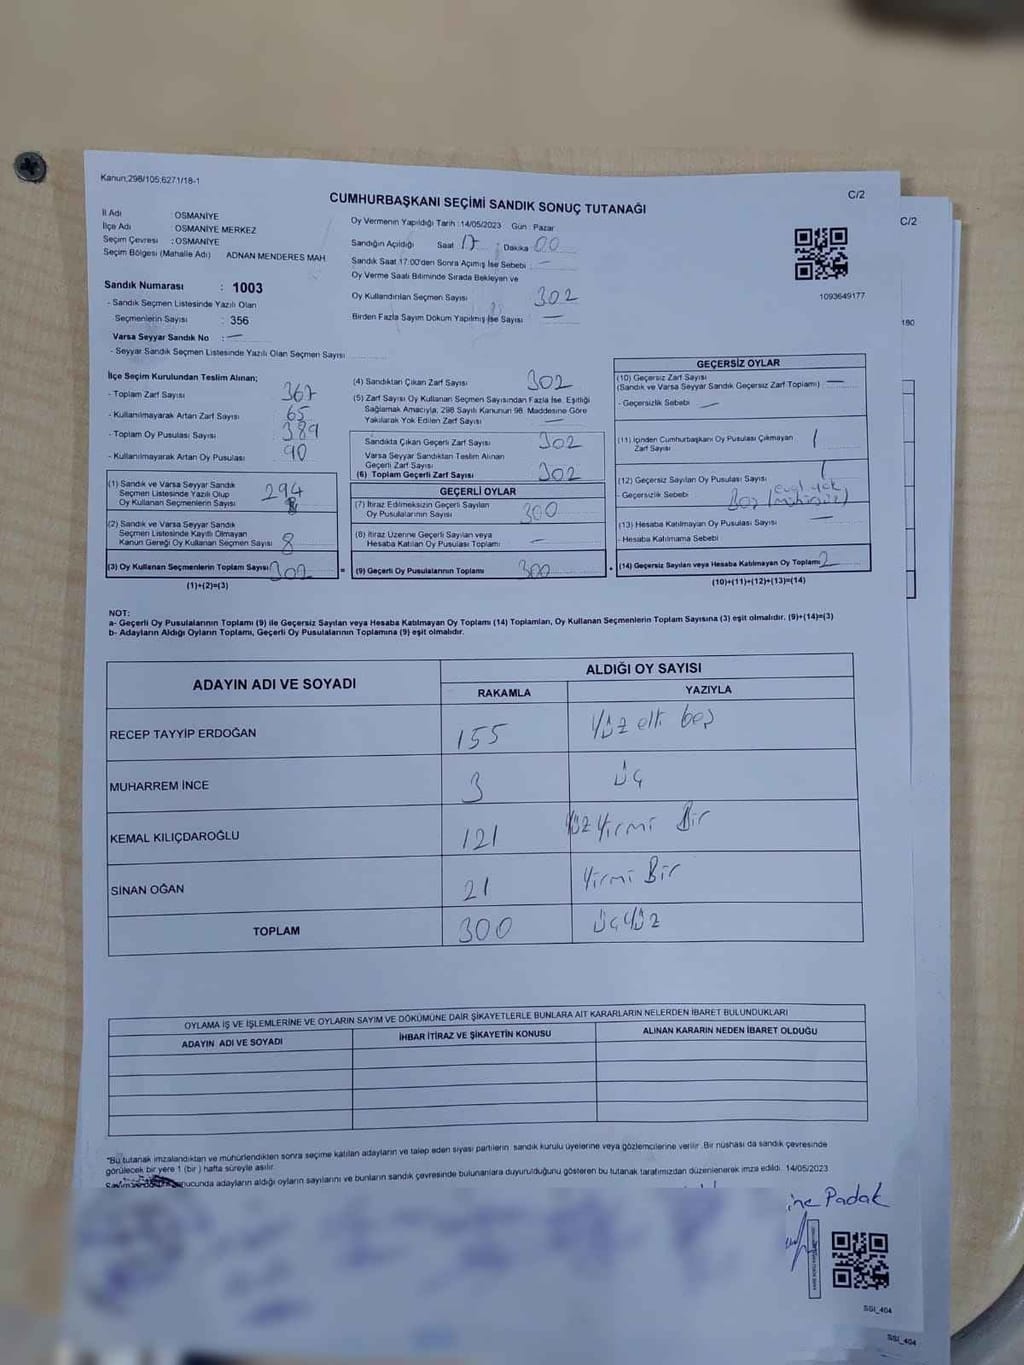 Kanun;298/105,6271/18-1
C/2
CUMHURBAŞKANI SEÇİMİ SANDIK SONUÇ TUTANAĞI
C/2
İl Adı OSMANİYE
İlçe Adı OSMANİYE MERKEZ
Seçim Çevresi : OSMANİYE
Seçim Bölgesi (Mahalle Adı) ADNAN MENDERES MAH
Sandık Numarası : 1003
- Sandık Seçmen Listesinde Yazılı Olan
Seçmenlerin Sayısı : 356
Varsa Seyyar Sandık No : —
- Seyyar Sandık Seçmen Listesinde Yazılı Olan Seçmen Sayısı
Oy Vermenin Yapıldığı Tarih : 14/05/2023 Gün : Pazar
Sandığın Açıldığı Saat 17 : Dakika 00
Sandık Saat 17:00'den Sonra Açımış İse Sebebi : —
Oy Verme Saati Bitiminde Sırada Bekleyen ve
Oy Kullandırılan Seçmen Sayısı 302
Birden Fazla Sayım Döküm Yapılmış İse Sayısı —
1093649177
180
İlçe Seçim Kurulundan Teslim Alınan;
- Toplam Zarf Sayısı 367
- Kullanılmayarak Artan Zarf Sayısı 65
- Toplam Oy Pusulası Sayısı 389
- Kullanılmayarak Artan Oy Pusulası 90
(1) Sandık ve Varsa Seyyar Sandık
Seçmen Listesinde Yazılı Olup
Oy Kullanan Seçmenlerin Sayısı 294
(2) Sandık ve Varsa Seyyar Sandık
Seçmen Listesinde Kayıtlı Olmayan
Kanun Gereği Oy Kullanan Seçmen Sayısı 8
(3) Oy Kullanan Seçmenlerin Toplam Sayısı 302
(1)+(2)=(3)
(4) Sandıktan Çıkan Zarf Sayısı 302
(5) Zarf Sayısı Oy Kullanan Seçmen Sayısından Fazla İse, Eşitliği
Sağlamak Amacıyla, 298 Sayılı Kanunun 98. Maddesine Göre
Yakılarak Yok Edilen Zarf Sayısı —
Sandıkta Çıkan Geçerli Zarf Sayısı 302
Varsa Seyyar Sandıktan Teslim Alınan
Geçerli Zarf Sayısı
(6) Toplam Geçerli Zarf Sayısı 302
GEÇERLİ OYLAR
(7) İtiraz Edilmeksizin Geçerli Sayılan
Oy Pusulalarının Sayısı 300
(8) İtiraz Üzerine Geçerli Sayılan veya
Hesaba Katılan Oy Pusulası Toplamı —
= (9) Geçerli Oy Pusulalarının Toplamı 300
GEÇERSİZ OYLAR
(10) Geçersiz Zarf Sayısı
(Sandık ve Varsa Seyyar Sandık Geçersiz Zarf Toplamı) —
- Geçersizlik Sebebi —
(11) İçinden Cumhurbaşkanı Oy Pusulası Çıkmayan
Zarf Sayısı 1
(12) Geçersiz Sayılan Oy Pusulası Sayısı 1
- Geçersizlik Sebebi
(13) Hesaba Katılmayan Oy Pusulası Sayısı —
- Hesaba Katılmama Sebebi
+ (14) Geçersiz Sayılan veya Hesaba Katılmayan Oy Toplamı 2
(10)+(11)+(12)+(13)=(14)
NOT:
a- Geçerli Oy Pusulalarının Toplamı (9) ile Geçersiz Sayılan veya Hesaba Katılmayan Oy Toplamı (14) Toplamları, Oy Kullanan Seçmenlerin Toplam Sayısına (3) eşit olmalıdır. (9)+(14)=(3)
b- Adayların Aldığı Oyların Toplamı, Geçerli Oy Pusulalarının Toplamına (9) eşit olmalıdır.
ADAYIN ADI VE SOYADI
ALDIĞI OY SAYISI
RAKAMLA YAZIYLA
RECEP TAYYİP ERDOĞAN 155 Yüz elli beş
MUHARREM İNCE 3 Üç
KEMAL KILIÇDAROĞLU 121 Yüz Yirmi Bir
SİNAN OĞAN 21 Yirmi Bir
TOPLAM 300 Üçyüz
OYLAMA İŞ VE İŞLEMLERİNE VE OYLARIN SAYIM VE DÖKÜMÜNE DAİR ŞİKAYETLERLE BUNLARA AİT KARARLARIN NELERDEN İBARET BULUNDUKLARI
ADAYIN ADI VE SOYADI İHBAR İTİRAZ VE ŞİKAYETİN KONUSU ALINAN KARARIN NEDEN İBARET OLDUĞU
"Bu tutanak imzalandıktan ve mühürlendikten sonra seçime katılan adayların ve talep eden siyasi partilerin sandık kurulu üyelerine veya gözlemcilerine verilir. Bir nüshası da sandık çevresinde
görülecek bir yere 1 (bir) hafta süreyle asılır.
sonucunda adayların aldığı oyların sayılarını ve bunların sandık çevresinde bulunanlara duyurulduğunu gösteren bu tutanak tarafımızdan düzenlenerek imza edildi. 14/05/2023
ine Padak
SSI_404
SSI_404